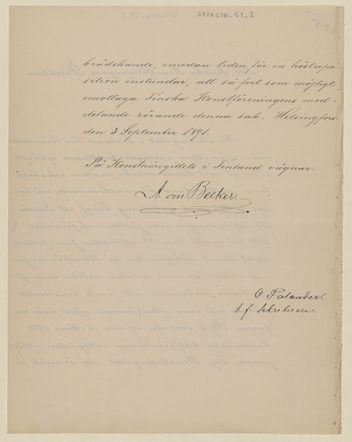 STYAC16_51_2
brådskande, emedan tiden för en höstexpo-
sition instundar, att så fort som möjligt
emottaga Finska Konstföreningens med-
delande rörande denna sak. Helsingfors
den 3 September 1891.
På Konstnärsgillets i Finland vägnar:
A. von Becker.
O. Palander.
t. f. sekreterare.